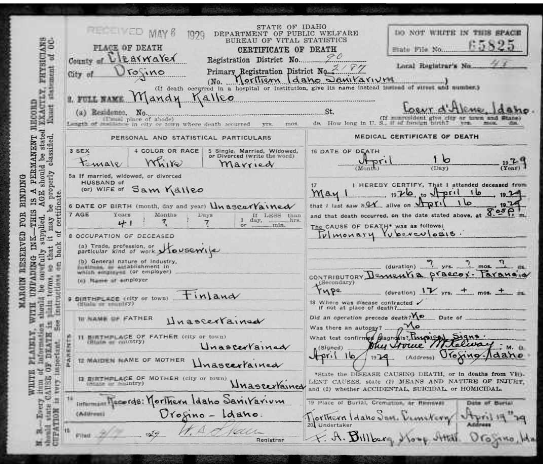 RECEIVED MAY 8 1929
STATE OF IDAHO
DEPARTMENT OF PUBLIC WELFARE
BUREAU OF VITAL STATISTICS
CERTIFICATE OF DEATH
DO NOT WRITE IN THIS SPACE
State File No. 65825
PLACE OF DEATH
County of Clearwater
City of Orofino
Registration District No. 90
Primary Registration District No. 2187
Local Registrar's No. 43
(No. Northern Idaho Sanitarium)
(If death occurred in a hospital or institution, give its name instead of street and number.)
2. FULL NAME Mandy Kalleo
(a) Residence, No. St. Coeur d'Alene, Idaho.
(Usual place of abode) (If nonresident give city or town and State)
Length of residence in city or town where death occurred yrs. mos. ds. How long in U. S. if of foreign birth? yrs. mos. ds.
PERSONAL AND STATISTICAL PARTICULARS
3 SEX Female
4 COLOR OR RACE White
5 Single, Married, Widowed, or Divorced (write the word) Married
5a If married, widowed, or divorced
HUSBAND of
(or) WIFE of Sam Kalleo
6 DATE OF BIRTH (month, day and year) Unascertained
7 AGE Years 41 Months ? Days ? If LESS than 1 day, hrs. or min.
8 OCCUPATION OF DECEASED
(a) Trade, profession, or particular kind of work Housewife
(b) General nature of industry, business, or establishment in which employed (or employer)
(c) Name of employer
9 BIRTHPLACE (city or town) Finland
(State or country)
10 NAME OF FATHER Unascertained
11 BIRTHPLACE OF FATHER (city or town)
(State or country) Unascertained
12 MAIDEN NAME OF MOTHER Unascertained
13 BIRTHPLACE OF MOTHER (city or town)
(State or country) Unascertained
PARENTS
14 Informant Records: Northern Idaho Sanitarium
(Address) Orofino - Idaho.
15 Filed 29
Registrar
MEDICAL CERTIFICATE OF DEATH
16 DATE OF DEATH April 16 1929
(Month) (Day) (Year)
17 I HEREBY CERTIFY, That I attended deceased from
May 1 1926 to April 16 1929
that I last saw er alive on April 16 1929
and that death occurred, on the date stated above, at 8:00 P m.
The CAUSE OF DEATH was as follows:
Pulmonary Tuberculosis.
(duration) ? yrs. ? mos. ? ds.
CONTRIBUTORY Dementia praecox - Paranoid
(Secondary) type (duration) 12 yrs. + mos. + ds.
18 Where was disease contracted if not at place of death?
Did an operation precede death? No
Was there an autopsy? No
What test confirmed diagnosis? Physical Signs.
(Signed) M. D.
April 16 1929 (Address) Orofino Idaho
*STATE the DISEASE CAUSING DEATH, or in deaths from VIOLENT CAUSES, state (1) MEANS and NATURE OF INJURY, and (2) whether ACCIDENTAL, SUICIDAL, or HOMICIDAL.
19 Place of Burial, Cremation, or Removal Date of Burial
Northern Idaho San. Cemetery April 19 '29
20 Undertaker (Address)
F. A. Billberg Hosp Attd. Orofino, Ida
MARGIN RESERVED FOR BINDING
WRITE PLAINLY, WITH UNFADING INK—THIS IS A PERMANENT RECORD
N. B.—Every item of information should be carefully supplied. AGE should be stated EXACTLY. PHYSICIANS should state CAUSE OF DEATH in plain terms so that it may be properly classified. Exact statement of OCCUPATION is very important. See instructions on back of certificate.